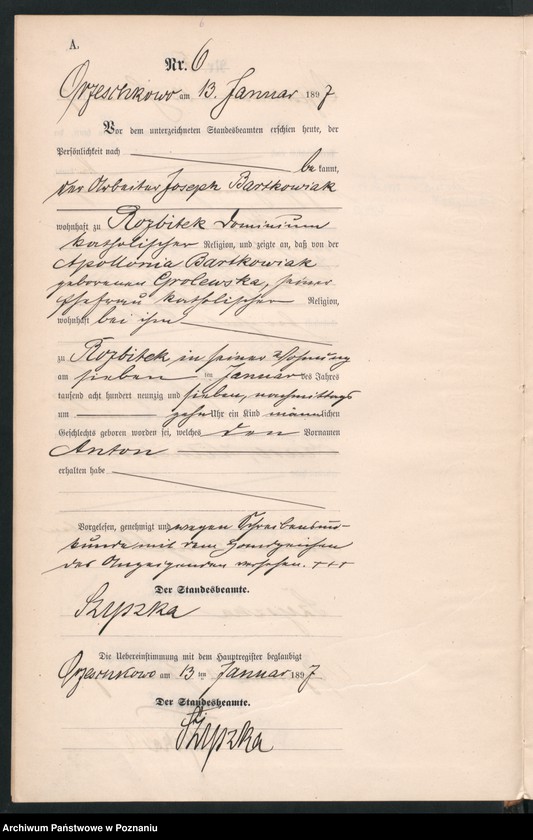 A.
Nr. 6
Orzeschkowo am 13. Januar 1897
Vor dem unterzeichneten Standesbeamten erschien heute, der
Persönlichkeit nach bekannt,
der Arbeiter Joseph Bartkowiak
wohnhaft zu Rozbitek Dominium
katholischer Religion, und zeigte an, daß von der
Apollonia Bartkowiak
geborenen Grolewska, seiner
Ehefrau katholischer Religion,
wohnhaft bei ihm
zu Rozbitek in seiner Wohnung
am sieben ten Januar des Jahres
tausend acht hundert neunzig und sieben, nachmittags
um zehn Uhr ein Kind männlichen
Geschlechts geboren worden sei, welches den Vornamen
Anton
erhalten habe
Vorgelesen, genehmigt und wegen Schreibensun-
kunde mit dem Handzeichen
des Anzeigenden versehen. +++
Der Standesbeamte.
Szyszka
Die Uebereinstimmung mit dem Hauptregister beglaubigt
Orzeschkowo am 13 ten Januar 1897
Der Standesbeamte.
Szyszka
Archiwum Państwowe w Poznaniu